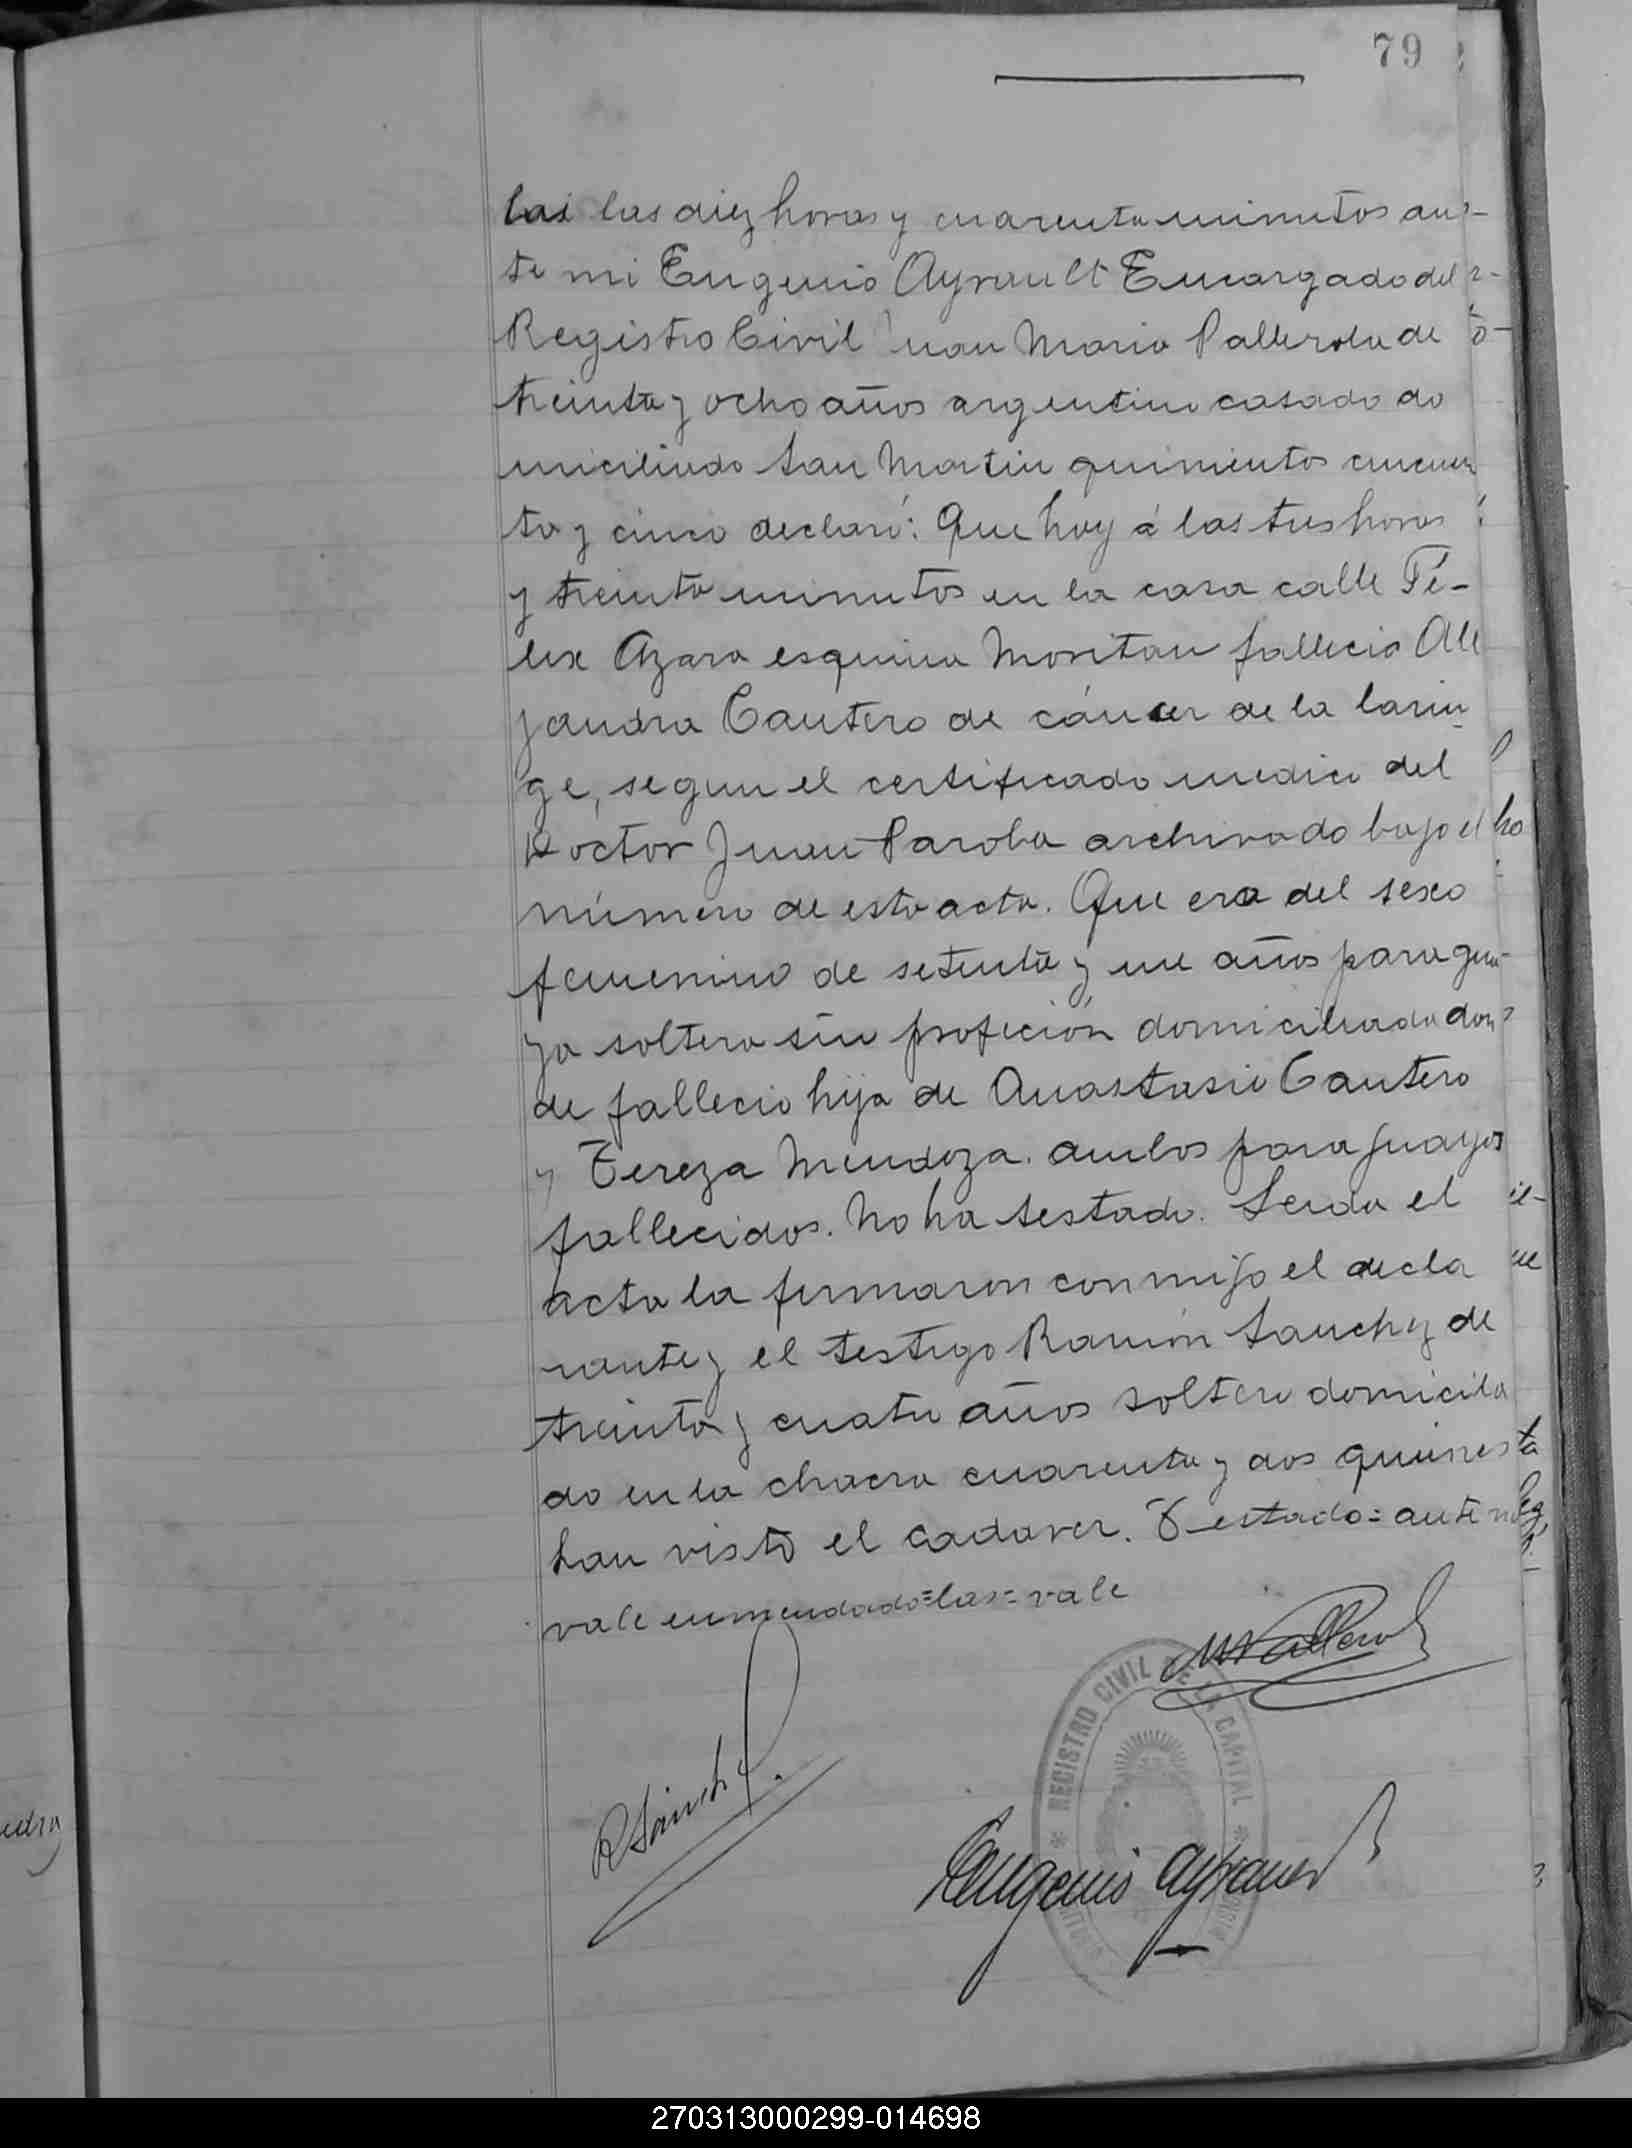 79
las las diez horas y cuarenta minutos an-
te mi Eugenio Ayrault Encargado del
Registro Civil Juan Maria Pallerola de
treinta y ocho años argentino casado do
miciliado San Martin quinientos cincuen
ta y cinco declaró: Que hoy á las tres horas
y treinta minutos en la casa calle Fé-
lix Azara esquina Moritan fallecio Ale
jandra Cantero de cáncer de la larin
ge, segun el certificado medico del
Doctor Juan Paroba archivado bajo el
número de esta acta. Que era del sexo
femenino de setenta y un años paragua-
ya soltera sin profeción domiciliada don
de fallecio hija de Anastasio Cantero
y Tereza Mendoza. ambos paraguayos
fallecidos. No ha testado. Leida el
acta la firmaron conmigo el decla
rante y el testigo Ramón Sanchez de
treinta y cuatro años soltero domicilia
do en la chacra cuarenta y dos quienes
han visto el cadaver. Testado=ante no
vale enmendado=las=vale
R Sánchez
Eugenio Ayrault
REGISTRO CIVIL DE LA CAPITAL
270313000299-014698